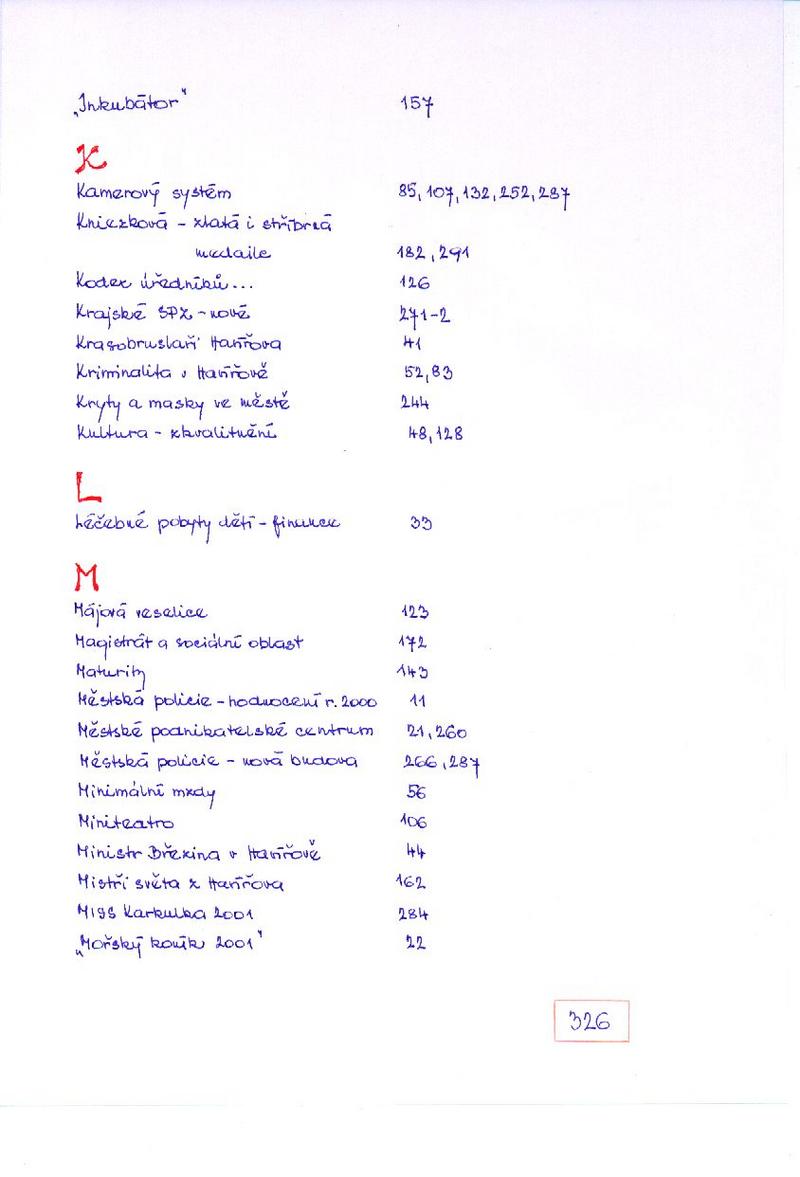 „Inkubátor" 157
K
Kamerový systém 85, 107, 132, 252, 287
Kniezková - zlatá i stříbrná
medaile 182, 291
Kodex úředníků... 126
Krajské SPZ - nové 271-2
Krasobruslaři Havířova 41
Kriminalita v Havířově 52, 83
Kryty a masky ve městě 244
Kultura - zkvalitnění 48, 128
L
Léčebné pobyty dětí - finance 33
M
Májová veselice 123
Magistrát a sociální oblast 172
Maturity 143
Městská policie - hodnocení r. 2000 11
Městské podnikatelské centrum 21, 260
Městská policie - nová budova 266, 287
Minimální mzdy 56
Miniteatro 106
Ministr Březina v Havířově 44
Mistři světa z Havířova 162
MISS Karkulka 2001 284
„Mořský koník 2001" 22
326